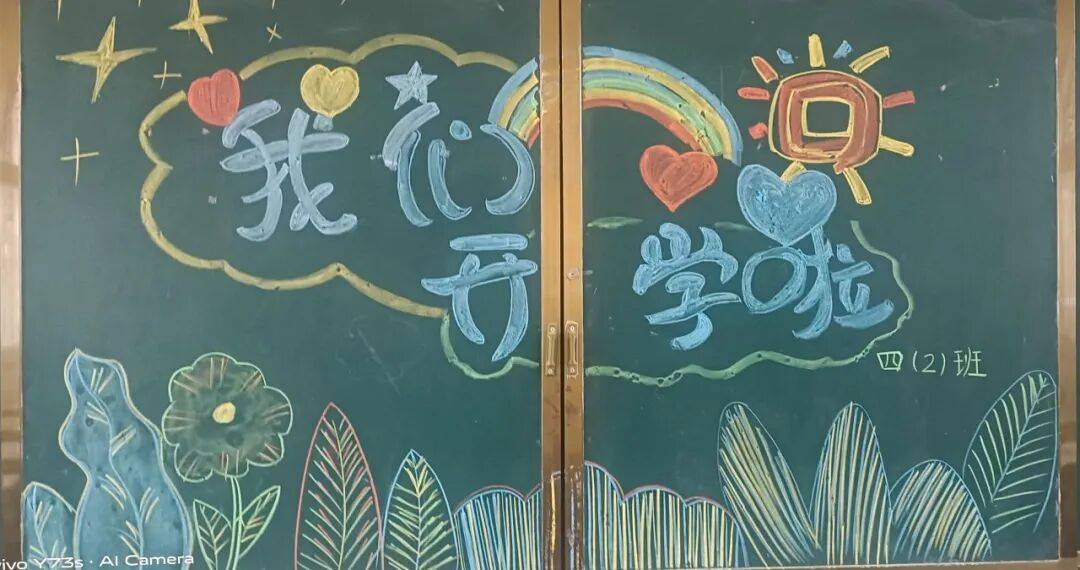 我们
开学啦
四(2)班
vivo Y73s · AI Camera